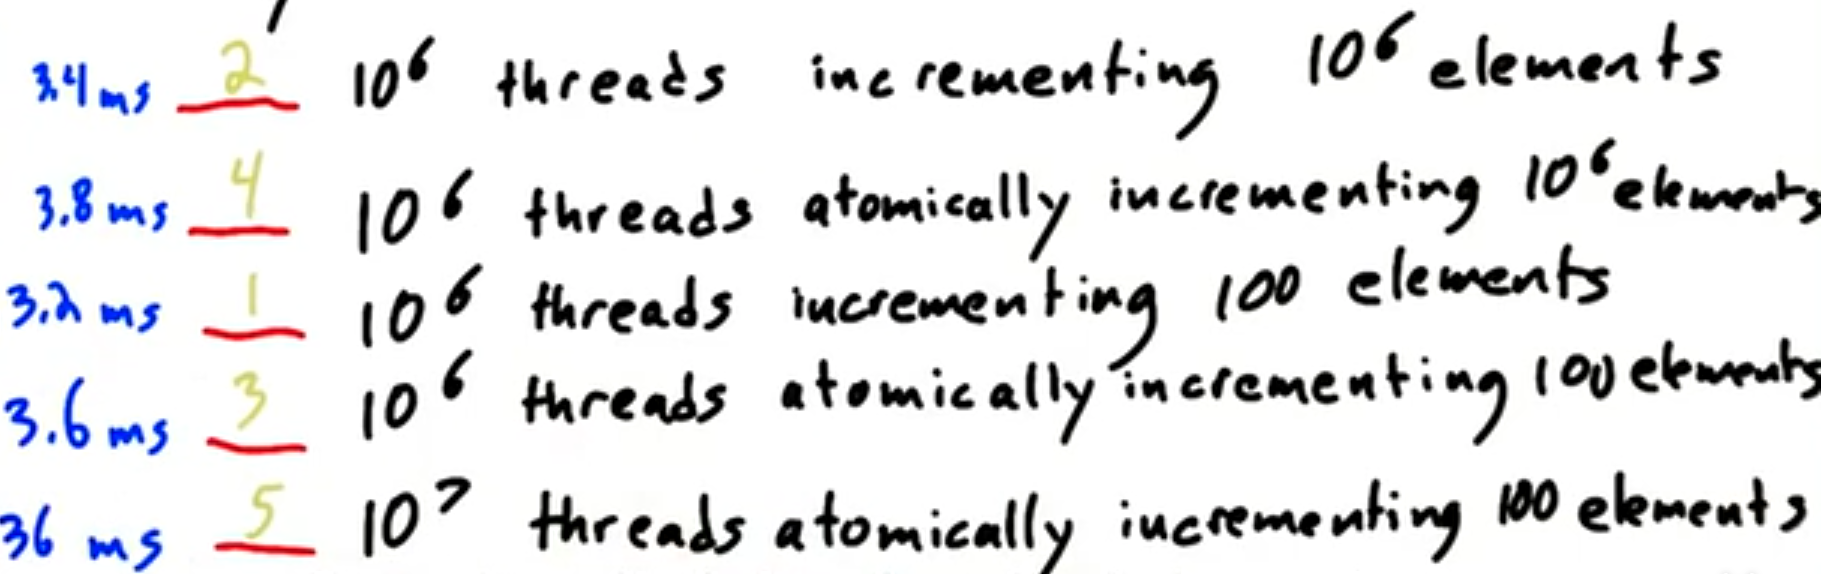 3.4 ms 2 10⁶ threads incrementing 10⁶ elements
3.8 ms 4 10⁶ threads atomically incrementing 10⁶ elements
3.2 ms 1 10⁶ threads incrementing 100 elements
3.6 ms 3 10⁶ threads atomically incrementing 100 elements
36 ms 5 10⁷ threads atomically incrementing 100 elements